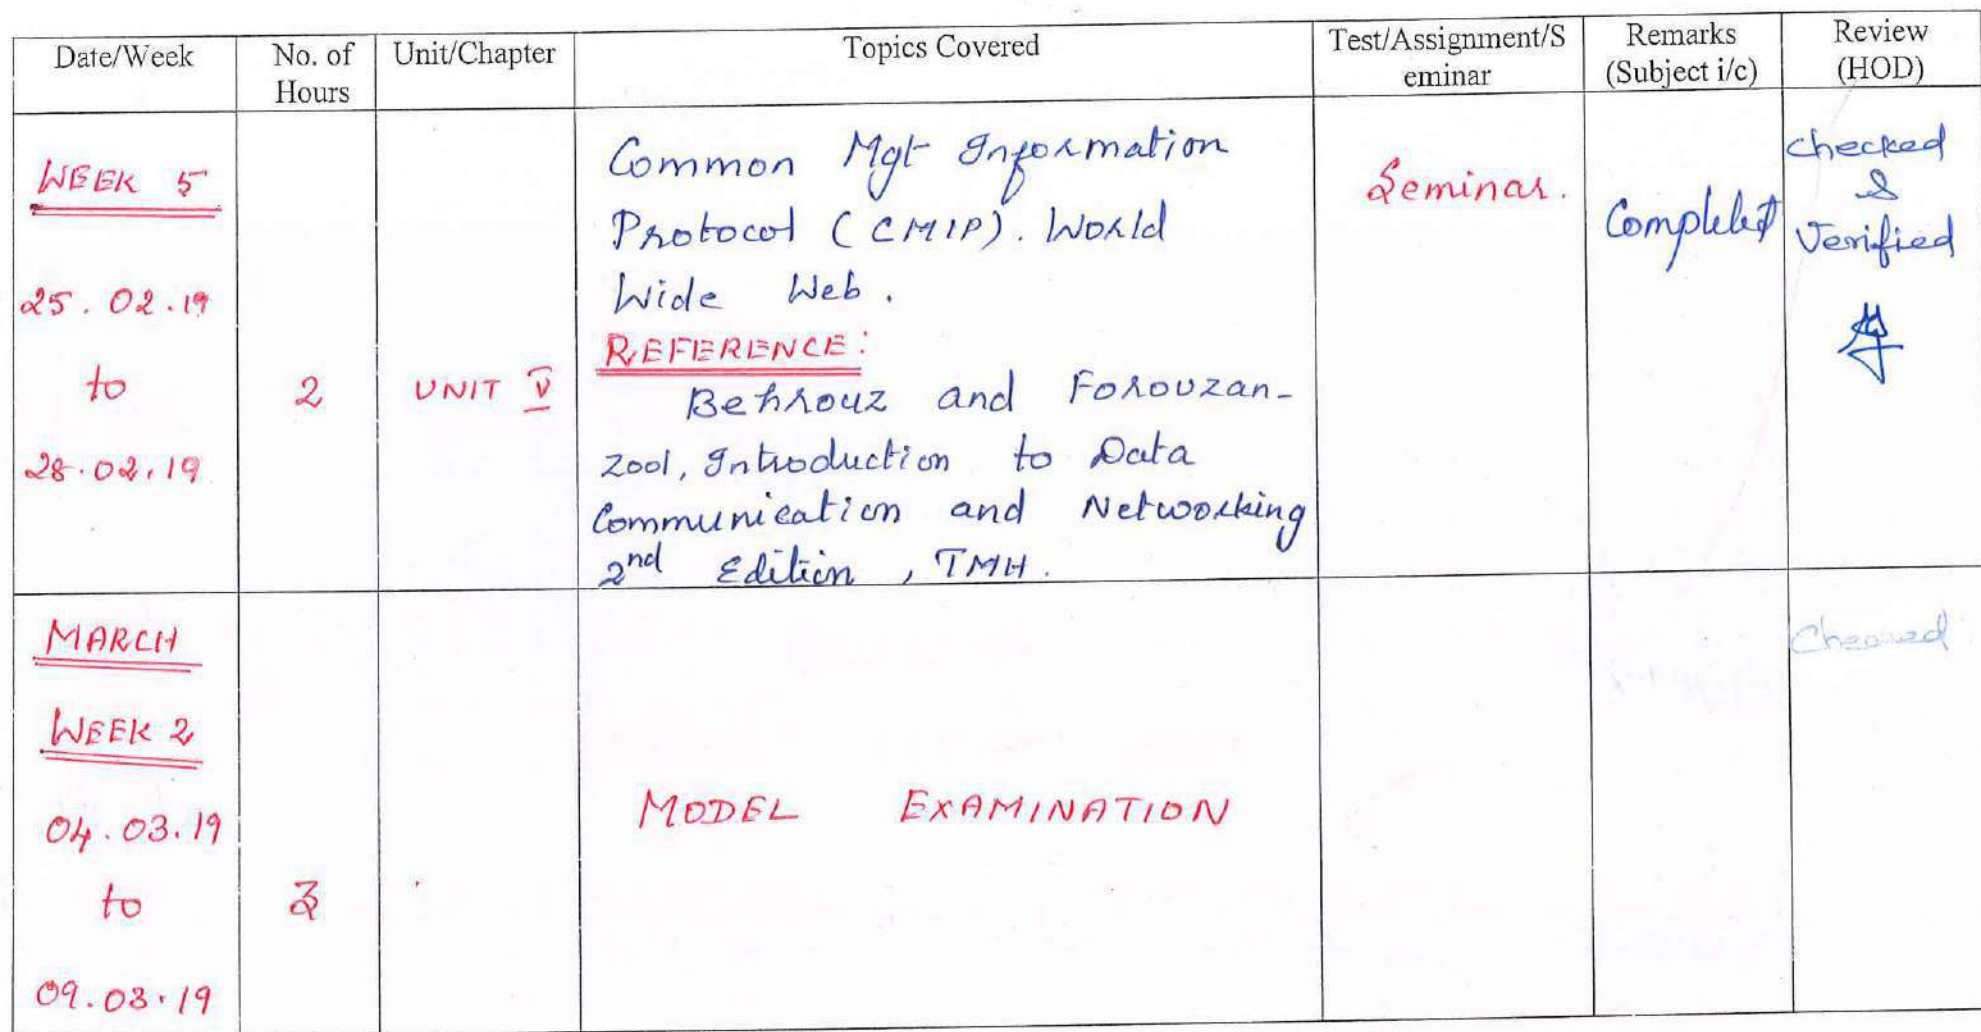 Date/Week
No. of
Hours
Unit/Chapter
Topics Covered
Test/Assignment/S
eminar
Remarks
(Subject i/c)
Review
(HOD)
WEEK 5
25.02.19
to
28.02.19
2
UNIT V
Common Mgt Information
Protocol (CMIP). World
Wide Web.
REFERENCE:
Behrouz and Forouzan-
2001, Introduction to Data
Communication and Networking
2nd Edition, TMH.
Seminar.
Completed
Checked
&
Verified
MARCH
WEEK 2
04.03.19
to
09.03.19
MODEL EXAMINATION